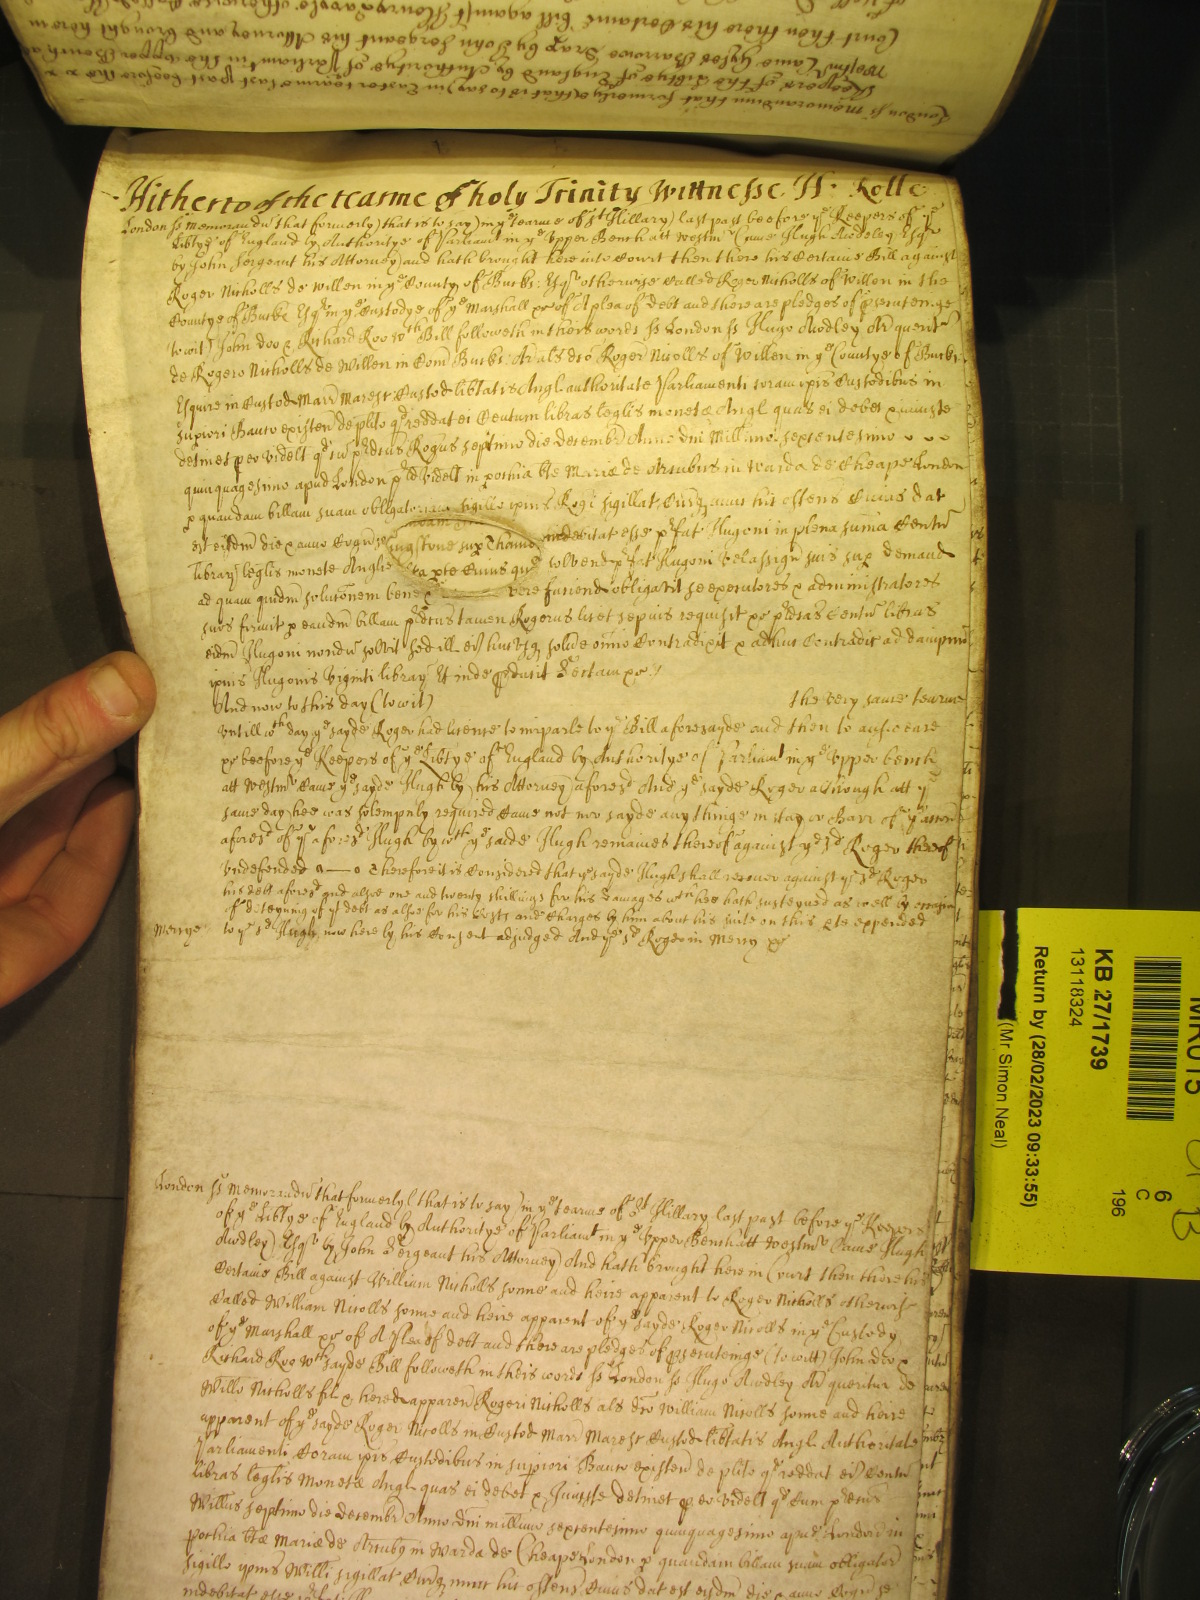 London ss memorandum that formerly (that is to say) in Easter tearme last past before the x x
Keepers of the Libtye of England by Authoritye of Parliament in the Upper Bench att
Westmr Came Gyles Barrowe Drap by John Sergeant his Attorney and brought here in
Court then there his Certaine bill against Henry
Hitherto of the tearme of holy Trinity Wittnesse H: Rolle
London ss Memorandu that formerly (that is to say) in ye tearme of St Hillary) last past beefore ye Keepers of ye
Libtye of England by Authoritye of Parliamt in ye Upper Bench att Westmr Came Hugh Audeley Esqr
by John Sergeant his Attorney) and hath brought here into Court then there his Certaine Bill against
Roger Nicholls de Willen in ye County of Bucks: Esqr otherwise Called Roger Nicholls of Willen in the
Countye of Bucke Esqr in ye Custodye of ye Marshall xr of A plea of debt and there are pledges of psecutenge
towitt John doo x Richard Roo wth Bill followeth in theis words ss London ss Hugo Audley Ar querit
de Rogero Nicholls de Willen in Com Bucks: Ar als dco Roger Nicolls of Willen in ye Countye of Bucks
Esquire in Custod Marr Maresc Custod libtatis Angl authoritate Parliamenti coram ipis Custodibus in
supiori Banco existen de plito qd reddat ei Centum libras leglis monete Angl quas ei debet x iniuste
detinet p eo videlt qd cu pdcus Rogus septimo die decembr Anno dni Millimo sexcentesimo
quinquagesimo apud London pd videlt in pochia bte Marie de Arcubus in Warda de Cheape London
p quandam billam suam obligatoriam sigillo ipius Rogi sigillat Curq nunc hic ostens Cuius dat
est eisdm die x anno Cogn se indebitat esse pfat Hugoni in plena suma Centu
librar leglis monete Anglie solvend pfat Hugoni vel assign suis sup demand
ad quam quidm solutonem bene x vere faciend obligavit se executores x administratores
suos firmit p eandm billam pdcus tamen Rogerus licet sepius requisit xr pdcas Centu libras
eidm Hugoni nondu solvit sed ill ei hucusq solvere omino Contradixit x adhuc Contradic ad dampnu
ipius Hugonis Viginti librar Et inde pducit sectam xr
And now to this day (to wit) the very same tearme
Untill wch day ye sayde Roger had license to imparle to ye Bill aforesayde and then to answeare
xr beefore ye Keepers of ye Libtye of England by Authoritye of Parliamt in ye Upper bench
att Westmr Came ye sayde Hugh by his Attorney aforesd And ye sayde Roger although att ye
same day hee was solempnly required Came not nor sayde any thinge in stay or Barr of ye accon
aforesd of ye aforesd Hugh by wch ye saide Hugh remaines thereof against ye sd Roger thereof
Undefended Therefore it is Considered that ye sayde Hugh shall recover against ye sd Roger
his debt aforesd and alsoe one and twenty shillings for his damages wch hee hath susteyned as well by occasion
of deteyning of yt debt as alsoe for his Costs and Charges by him about his suite on this pte expended
Mercye to ye sd Hugh now here by his Consent adjudged And ye sd Roger in Mercy xr
London ss Memorandu that formerly (that is to say in ye tearme of St Hillary last past before ye Keepers
of ye Libtye of England by Authoritye of Parliamt in ye Upper Bench att Westmr Came Hugh
Audley Esqr by John Sergeant his Attorney) And hath brought here in Court then there his
Certaine Bill against William Nicholls sonne and heire apparent to Roger Nicholls otherwise
Called William Nicolls sonne and heire apparent of ye sayde Roger Nicolls in ye Custody
of ye Marshall xr of A Plea of debt and there are pledges of psecuteinge (to witt) John doo x
Richard Roo wch sayde Bill followeth in theis words ss London ss Hugo Audley Ar queritur de
Willo Nicholls fil x hered apparen Rogeri Nicholls als dco William Nicolls sonne and heire
apparent of ye sayde Roger Nicolls in Custod Marr Maresc Custod libtatis Angl Authoritate
Parliamenti Coram ipis Custodibus in supiori Banco existen de plito qd reddat ei Centu
libras leglis Monete Angl quas ei debet x Iniuste detinet p eo videlt qd Cum pdcus
Willus septimo die decembr Anno dni millimo sexcentesimo quinquagesimo apud London in
pochia bte Marie de Arcubq in Warda de Cheape London p quandam billam suam obligator
sigillo ipius Willi sigillat Curq nunc hic ostens Cuius dat est eisdm die x anno Cogn se
indebitat esse
KB 27/1739
13118324
Return by (28/02/2023 09:33:55)
(Mr Simon Neal)
6
C
196